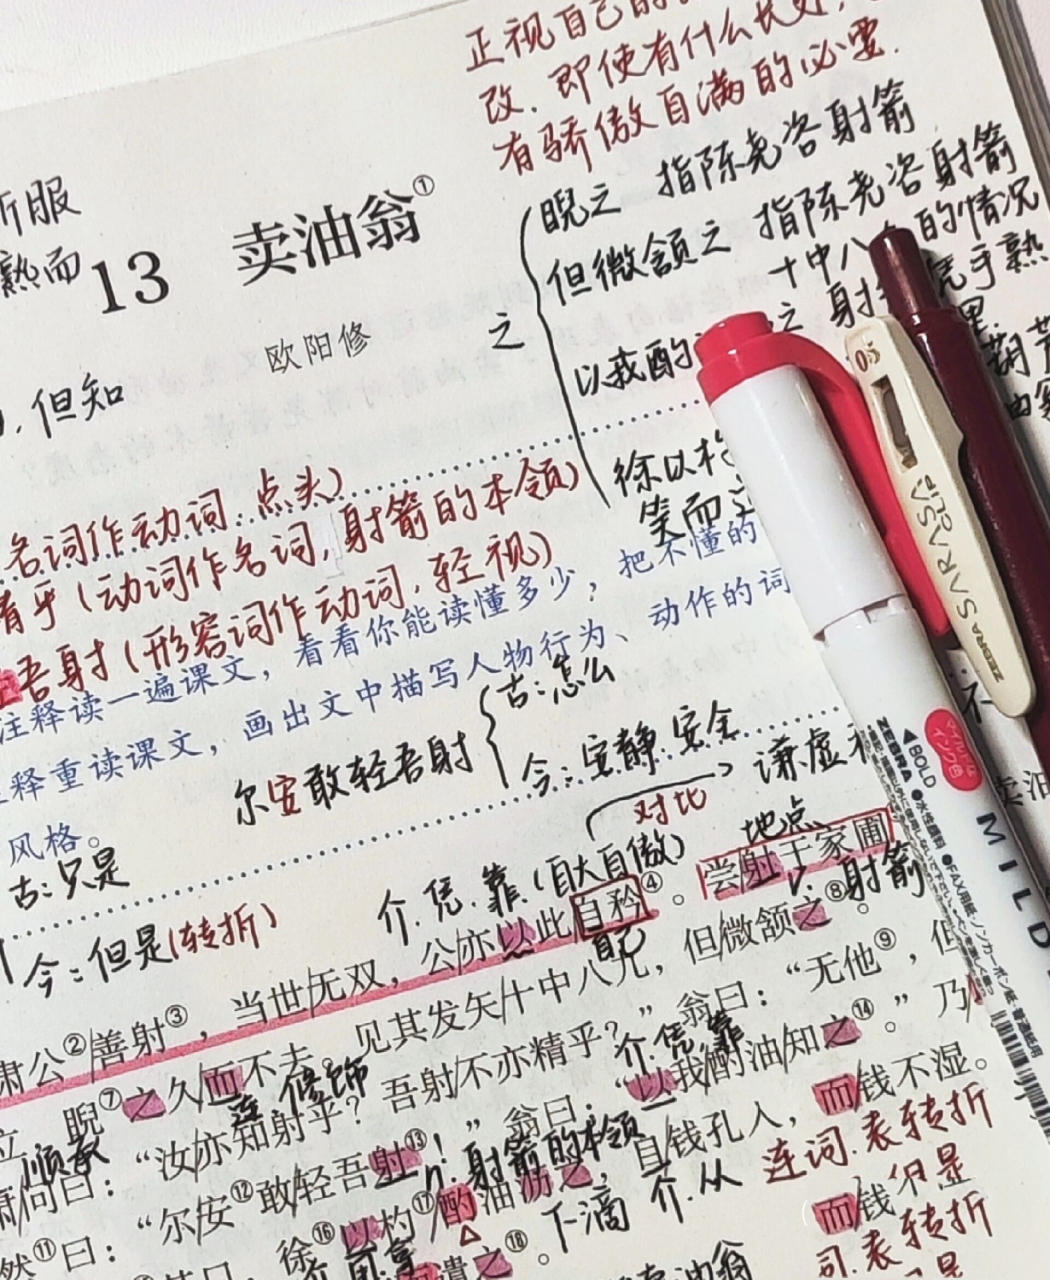 正视自己的
改.即使有什么长处,
有骄傲自满的必要.
睨之 指陈尧咨射箭
但微颔之 指陈尧咨射箭
十中八 的情况
之
以我酌 之 射 凭手熟
徐以杓
笑而
折服
熟而
13 卖油翁①
欧阳修
.但知
名词作动词.点头)
精乎(动词作名词,射箭的本领)
吾射(形容词作动词,轻视)
注释读一遍课文,看看你能读懂多少,把不懂的
释重读课文,画出文中描写人物行为、动作的词
风格。
尔安敢轻吾射
古:怎么
今:安静.安全
古:只是
今:但是(转折)
对比
谦虚
地点
介.凭.靠.(自大自傲)
肃公②善射③,当世无双,公亦以此自矜④。尝射于家圃
自己
v.射箭
立 睨⑦之久而不去。见其发矢十中八九,但微颔之⑧。
顺承
连 修饰
肃问曰:“汝亦知射乎?吾射不亦精乎?”翁曰:“无他⑨,但
介.凭.靠
然⑪曰:“尔安⑫敢轻吾射⑬!”翁曰:“以我酌油知之⑭。”乃
n.射箭的本领
徐⑯以杓⑰酌油沥之,自钱孔入,而钱不湿。
下滴
介.从
连词.表转折
而钱
但是
词.表转折
遣之⑱。
卖油翁
0.5
SARASA CLIP
ZEBRA
BOLD
MILD
ZEBRA